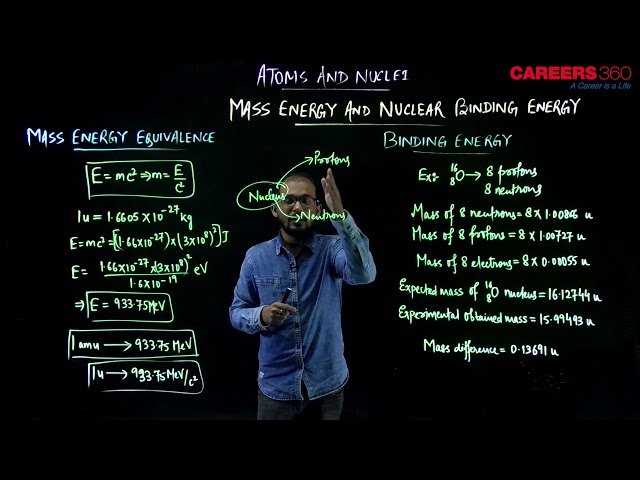 ATOMS AND NUCLEI
CAREERS360
A Career is a Life
MASS ENERGY AND NUCLEAR BINDING ENERGY
MASS ENERGY EQUIVALENCE
E = mc² ⇒ m = E/c²
1u = 1.6605 × 10⁻²⁷ kg
E = mc² = [(1.66×10⁻²⁷) × (3×10⁸)²] J
E = 1.66×10⁻²⁷ × (3×10⁸)² / 1.6×10⁻¹⁹ eV
⇒ E = 933.75 MeV
1 amu → 933.75 MeV
1u → 933.75 MeV/c²
Protons
Nucleus
Neutrons
BINDING ENERGY
Ex:- ¹⁶₈O → 8 protons
8 neutrons
Mass of 8 neutrons = 8 × 1.00866 u
Mass of 8 protons = 8 × 1.00727 u
Mass of 8 electrons = 8 × 0.00055 u
Expected mass of ¹⁶₈O nucleus = 16.12744 u
Experimental obtained mass = 15.99493 u
Mass difference = 0.13691 u